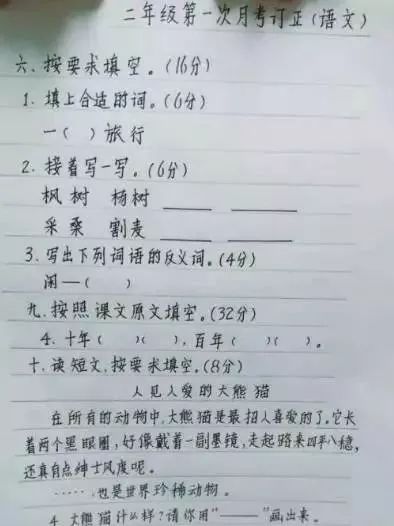 二年级第一次月考订正(语文)
六、按要求填空。(16分)
1. 填上合适的词。(6分)
一( )旅行
2. 接着写一写。(6分)
枫树 杨树 ____ ____
采桑 割麦 ____ ____
3. 写出下列词语的反义词。(4分)
闲—( )
九、按照课文原文填空。(32分)
4. 十年( )( ),百年( )( )。
十、读短文,按要求填空。(8分)
人见人爱的大熊猫
在所有的动物中,大熊猫是最招人喜爱的了。它长
着两个黑眼圈,好像戴着一副墨镜,走起路来四平八稳,
还真有点绅士风度呢。
······,也是世界珍稀动物。
4. 大熊猫什么样?请你用“——”画出来。